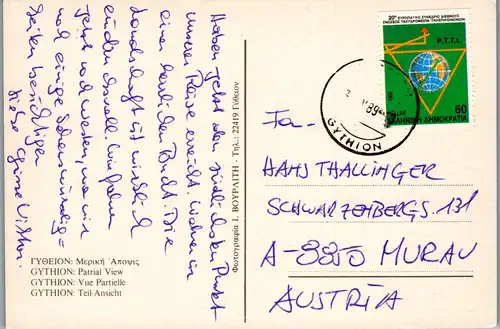 Haben jetzt den südlichsten Punkt
unserer Reise erreicht, wohnen in
einer herrlichen Bucht. Die
Landschaft ist wirklich
eindrucksvoll. Wir fahren
jetzt nordwesten, wo wir
noch einige Sehenswürdig-
keiten besichtigen
Liebe Grüsse
ΓΥΘΕΙΟΝ: Μερική Ἄποψις
GYTHION: Patrial View
GYTHION: Vue Partielle
GYTHION: Teil-Ansicht
Φωτογραφία Ι. ΒΟΥΡΛΙΤΗ - Τηλ.: 22419 Γύθειον
20ο ΕΥΡΩΠΑΪΚΟ ΣΥΝΕΔΡΙΟ ΔΙΕΘΝΟΥΣ
ΕΝΩΣΕΩΣ ΤΑΧΥΔΡΟΜΕΙΩΝ-ΤΗΛΕΠΙΚΟΙΝΩΝΙΩΝ
P.T.T.I.
60
ΕΛΛΗΝΙΚΗ ΔΗΜΟΚΡΑΤΙΑ
GYTHION
An
HANS THALLINGER
SCHWARZENBERGS. 131
A-8850 MURAU
AUSTRIA